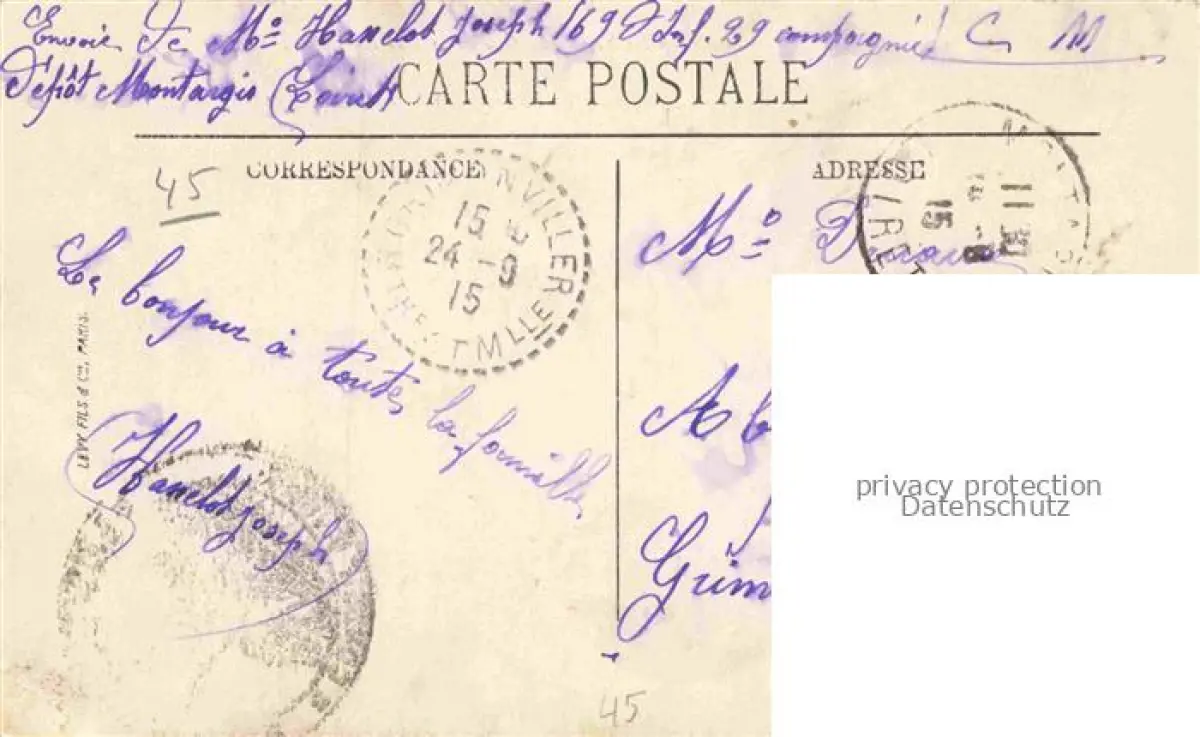 Envoie de Mr Hanelot Joseph 169 d'Inf. 29 compagnie C M
Dépôt Montargis (Loiret)
CARTE POSTALE
CORRESPONDANCE
ADRESSE
45
15
24 -9
15
VILLER
MLLE
11
15
Mr
Le bonjour à toutes la famille
Hanelot Joseph
LEVY FILS & Cie, PARIS
A
Grim
privacy protection
Datenschutz
45